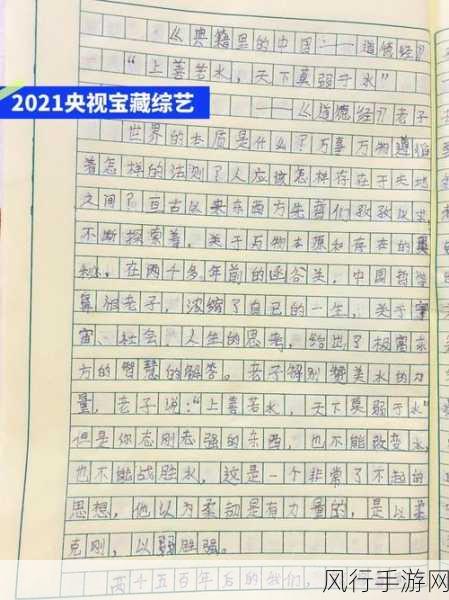 《典籍里的中国——道德经》
“上善若水，天下莫弱于水”
2021央视宝藏综艺
——《道德经》老子
世界的本质是什么？万事万物遵循
着怎样的法则？人应该怎样存在于天地
之间？亘古以来东西方先哲们孜孜以求
不断探索着，关于万物本源和存在的奥
秘，在两千多年前的函谷关，中国哲学
鼻祖老子，浓缩了自己的一生，关于宇
宙、社会、人生的思考，给出了极富东
方的智慧的解答。老子特别赞美水的力
量，老子说：“上善若水，天下莫弱于水”
但是你态刚态强的东西，也不能改变水，
也不能战胜水，这是一个非常了不起的
思想，他认为柔韧是有力量的，是以柔
克刚，以弱胜强。
两千五百年后的我们，
风行手游网